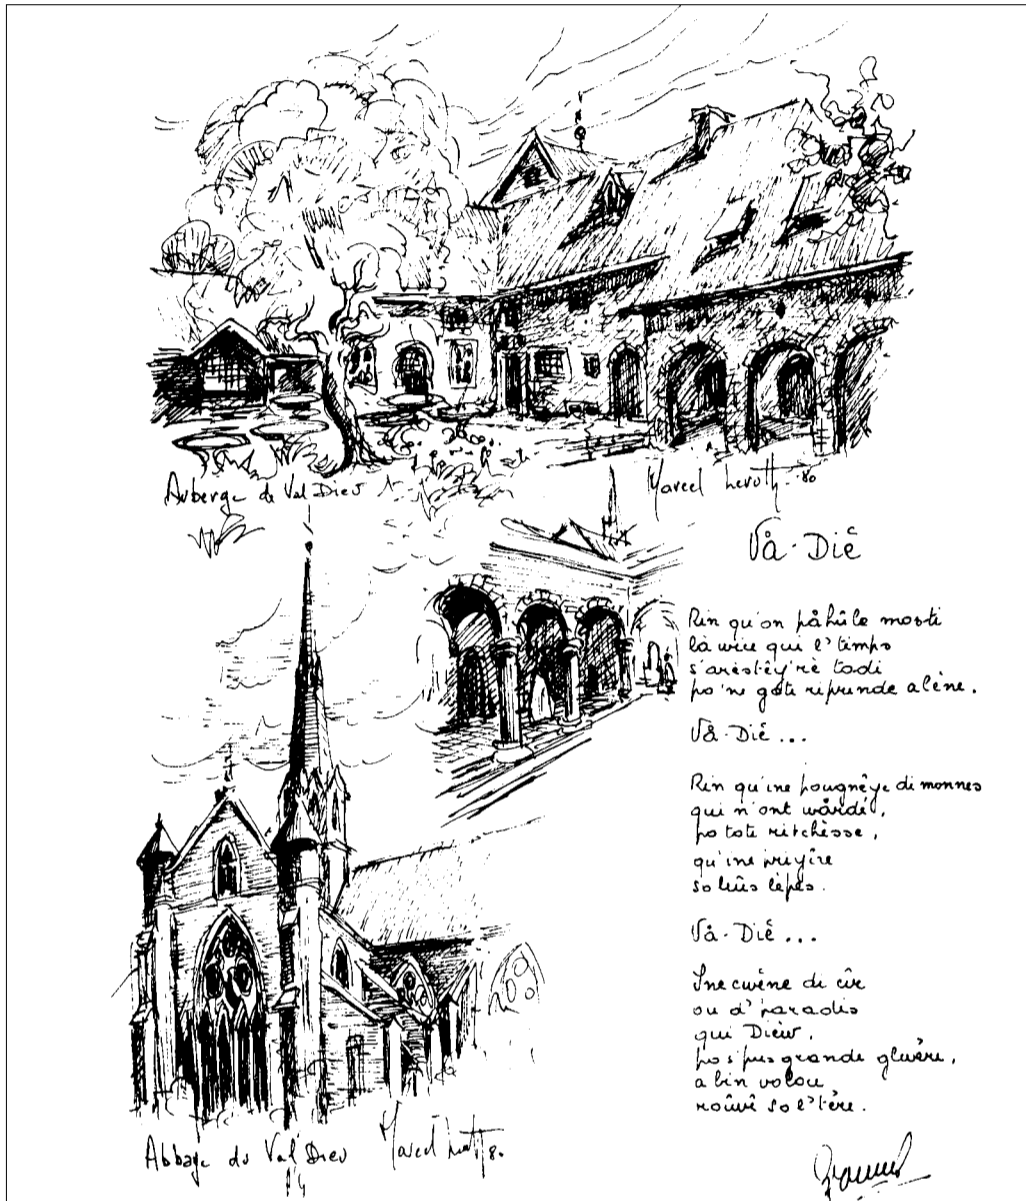 Auberge de Val Dieu
Marcel 80
Vå-Diè
Rin qu'on påhûle mosti
là wice qui l'timps
s'arestêy'rè todi
po 'ne gote riprinde alène.
Vå-Diè...
Rin qu'ine pougnèye di monnes
qui n'ont wårdé,
po tote ritchèsse,
qu'ine priyîre
so leûs lèpes.
Vå-Diè...
Ine cwène di cîr
ou d' paradis
qui Diew,
po s' pus grande glwère,
a bin volou
roûvî so l' tère.
Abbaye du Val Dieu
Marcel 80